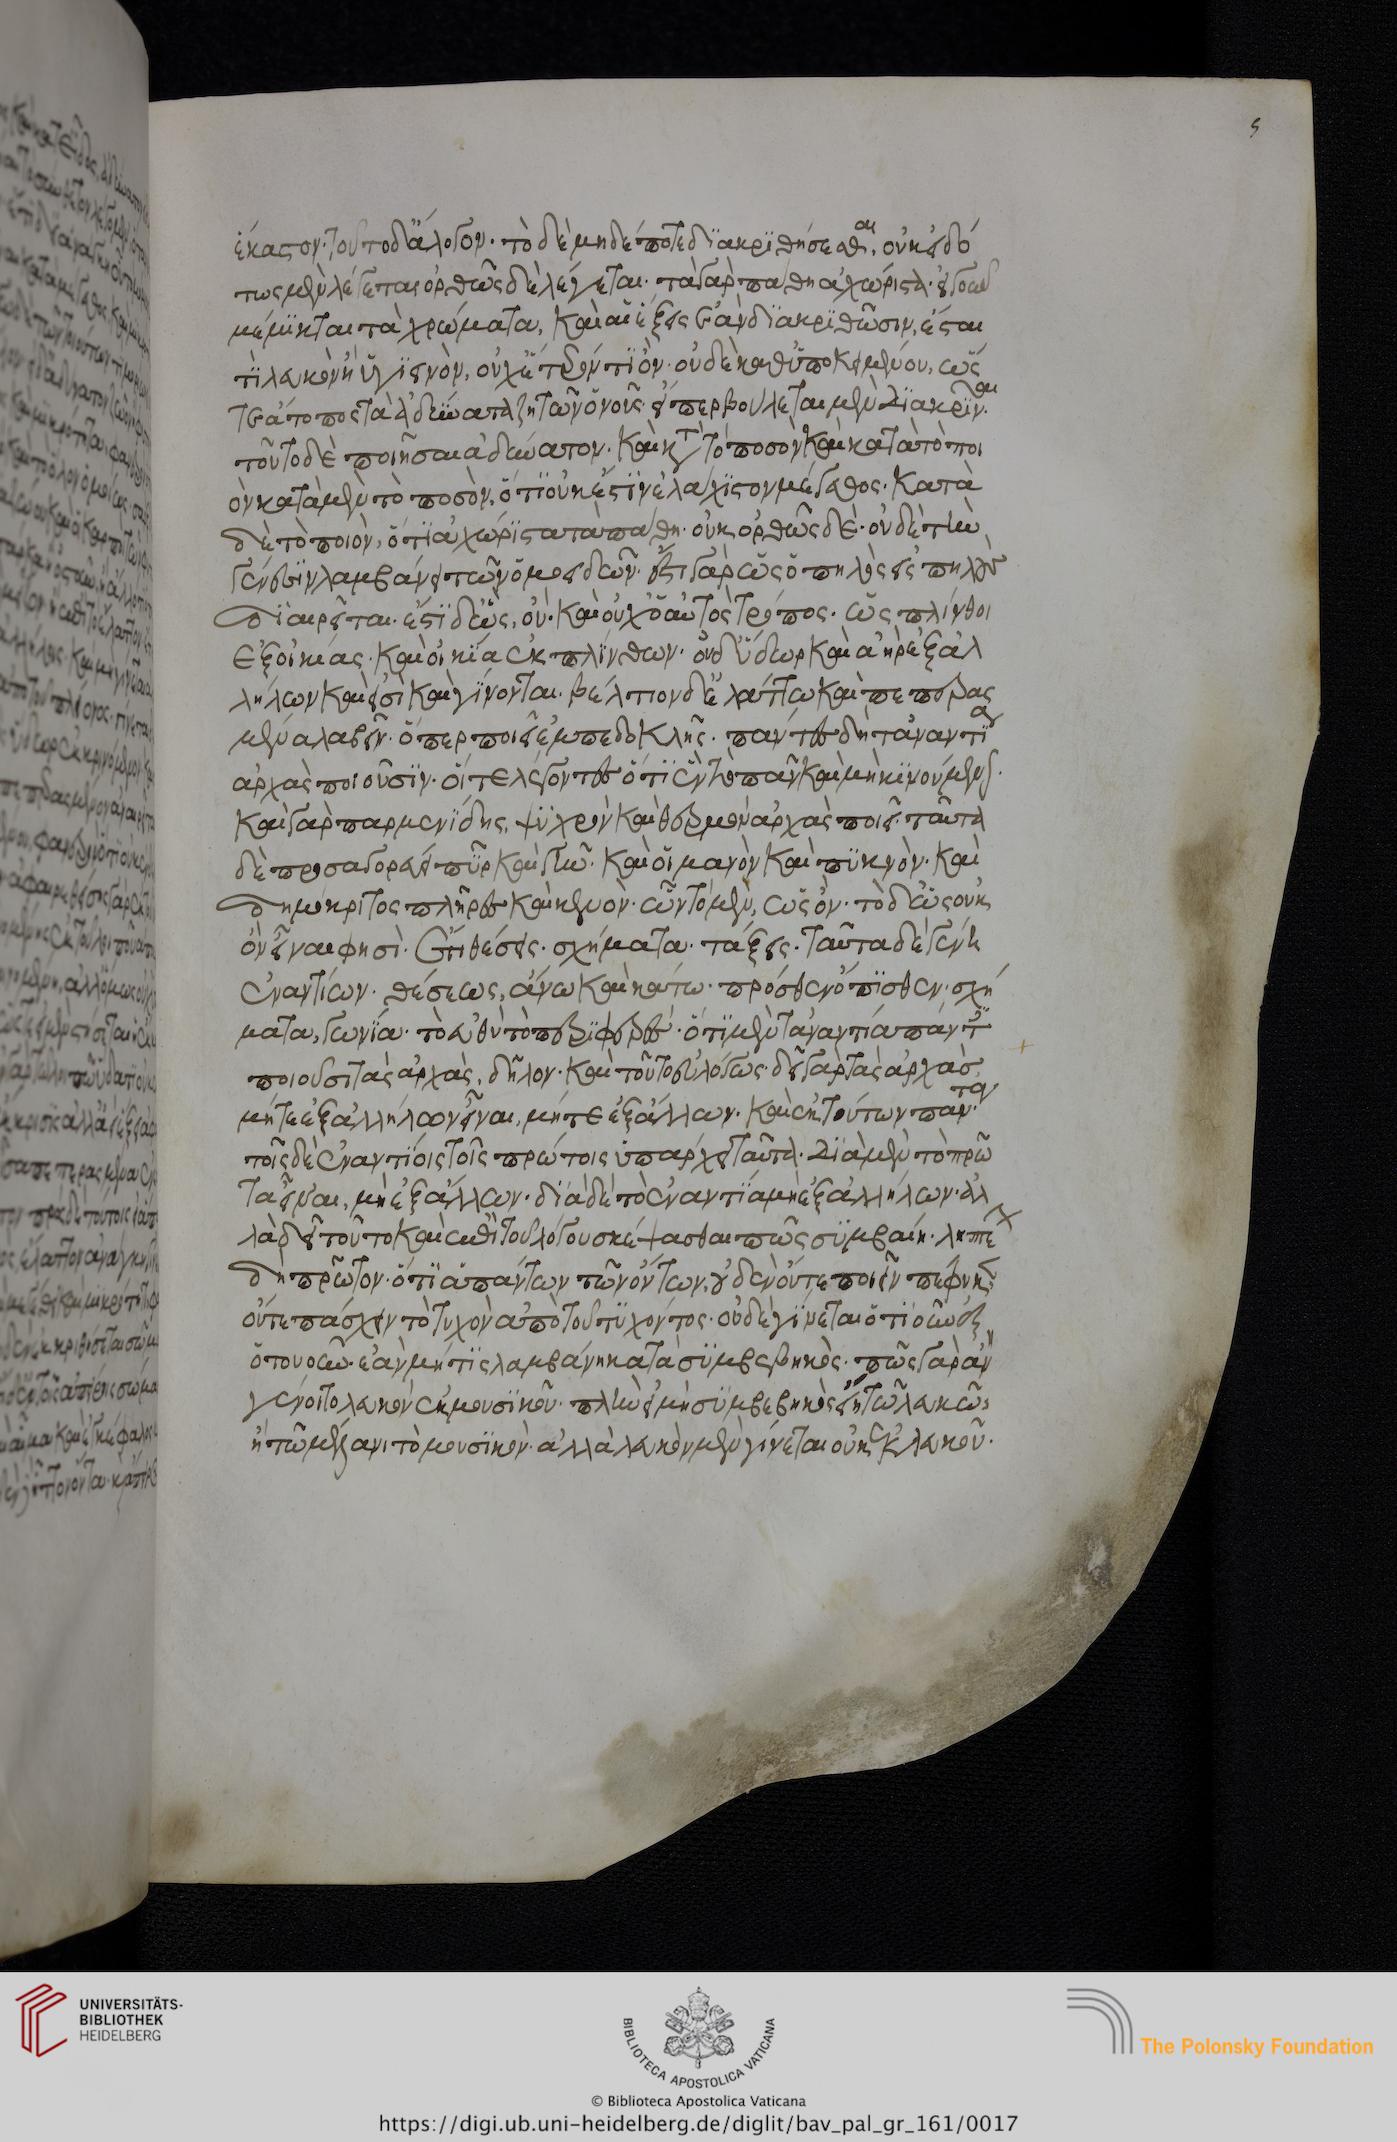 5
ἕκαστον· τοῦτο δ' ἄλογον· τὸ δὲ μηδέποτε διακριθήσεσθαι, οὐκ εἰδό
τως μὲν λέγεται· ὀρθῶς δὲ λέγεται· τὰ γὰρ πάθη ἀχώριστα· εἰ γοῦν
μέμικται τὰ χρώματα, καὶ αἱ ἕξεις ἐὰν διακριθῶσιν, ἔσται
τὶ λευκὸν ἢ ὑγιεινὸν, οὐχ ἕτερόν τι ὂν· οὐδὲ καθ' ὑποκειμένου, ὥς
τε ἄτοπος τὰ ἀδύνατα ζητῶν ὁ νοῦς· εἴπερ βούλεται μὲν διακρῖναι·
τοῦτο δὲ ποιῆσαι ἀδύνατον· καὶ κατὰ τὸ ποσὸν καὶ κατὰ τὸ ποι
ὸν κατὰ μὲν τὸ ποσὸν, ὅτι οὐκ ἔστιν ἐλάχιστον μέγεθος· κατὰ
δὲ τὸ ποιὸν, ὅτι ἀχώριστα τὰ πάθη· οὐκ ὀρθῶς δὲ· οὐδὲ τὴν
γένεσιν λαμβάνει τῶν ὁμοειδῶν· ἔστι γὰρ ὡς ὁ πηλὸς εἰς πηλοὺς
διαιρεῖται· ἔστι δ' ὡς, οὔ· καὶ οὐχ ὁ αὐτὸς τρόπος· ὡς πλίνθοι
ἐξ οἰκίας· καὶ οἰκία ἐκ πλίνθων· οὐδ' ὕδωρ καὶ ἀὴρ ἐξ ἀλ
λήλων καὶ εἰσὶ καὶ γίνονται· βέλτιον δ' ἐλάττω καὶ πεπερας
μένα λαβεῖν· ὅπερ ποιεῖ ἐμπεδοκλῆς· πάντες δὴ τἀναντία
ἀρχὰς ποιοῦσιν· οἵ τε λέγοντες ὅτι ἓν τὸ πᾶν καὶ μὴ κινούμενον·
καὶ γὰρ παρμενίδης, ψυχρὸν καὶ θερμὸν ἀρχὰς ποιεῖ· ταῦτα
δὲ προσαγορεύει πῦρ καὶ γῆν· καὶ οἱ μανὸν καὶ πυκνὸν· καὶ
δημόκριτος πλῆρες καὶ κενὸν· ὧν τὸ μὲν, ὡς ὂν· τὸ δ' ὡς οὐκ
ὂν εἶναι φησὶ· ἔτι θέσει· σχήματι· τάξει· ταῦτα δὲ γένη
ἐναντίων· θέσεως, ἄνω καὶ κάτω· πρόσθεν ὄπισθεν· σχή
ματα, γωνία· τὸ εὐθὺ τὸ περιφερές· ὅτι μὲν τἀναντία πάντες
ποιοῦσι τὰς ἀρχὰς, δῆλον· καὶ τοῦτο εὐλόγως· δεῖ γὰρ τὰς ἀρχὰς
μήτε ἐξ ἀλλήλων εἶναι, μήτε ἐξ ἄλλων· καὶ ἐκ τούτων πάντα·
τοῖς δὲ ἐναντίοις τοῖς πρώτοις ὑπάρχει ταῦτα· διὰ μὲν τὸ πρῶ
τα εἶναι, μὴ ἐξ ἄλλων· διὰ δὲ τὸ ἐναντία μὴ ἐξ ἀλλήλων· ἀλ
λὰ δεῖ τοῦτο καὶ ἐπὶ τοῦ λόγου σκέψασθαι πῶς συμβαίνει· ληπτέον
δὴ πρῶτον· ὅτι ἁπάντων τῶν ὄντων, οὐδὲν οὔτε ποιεῖν πέφυκεν
οὔτε πάσχειν τὸ τυχὸν ἀπὸ τοῦ τυχόντος· οὐδὲ γίνεται ὁτιοῦν ἐξ
ὁπουοῦν· ἐὰν μή τις λαμβάνῃ κατὰ συμβεβηκὸς· πῶς γὰρ ἂν
γένοιτο λευκὸν ἐκ μουσικοῦ· πλὴν εἰ μὴ συμβεβηκὸς εἴη τῶ λευκῶ,
ἢ τῶ μέλανι τὸ μουσικὸν· ἀλλὰ λευκὸν μὲν γίνεται οὐκ ἐκ λευκοῦ·
UNIVERSITÄTS-
BIBLIOTHEK
HEIDELBERG
BIBLIOTECA APOSTOLICA VATICANA
© Biblioteca Apostolica Vaticana
The Polonsky Foundation
https://digi.ub.uni-heidelberg.de/diglit/bav_pal_gr_161/0017